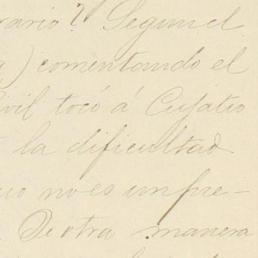 rario? Segun el
) comentando el
ivil tocó á Cujatio
la dificultad
no es impre-
De otra manera